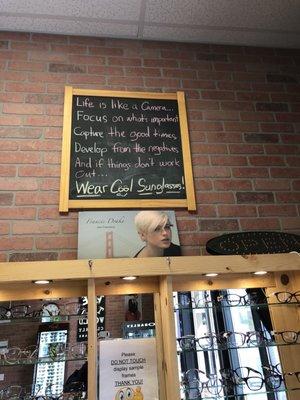 Life is like a Camera...
Focus on what's important
Capture the good times,
Develop from the negatives,
And if things don't work
out...
Wear Cool Sunglasses!
Frances Drake
OPEN
Please
DO NOT TOUCH
display
sample frames
THANK YOU!